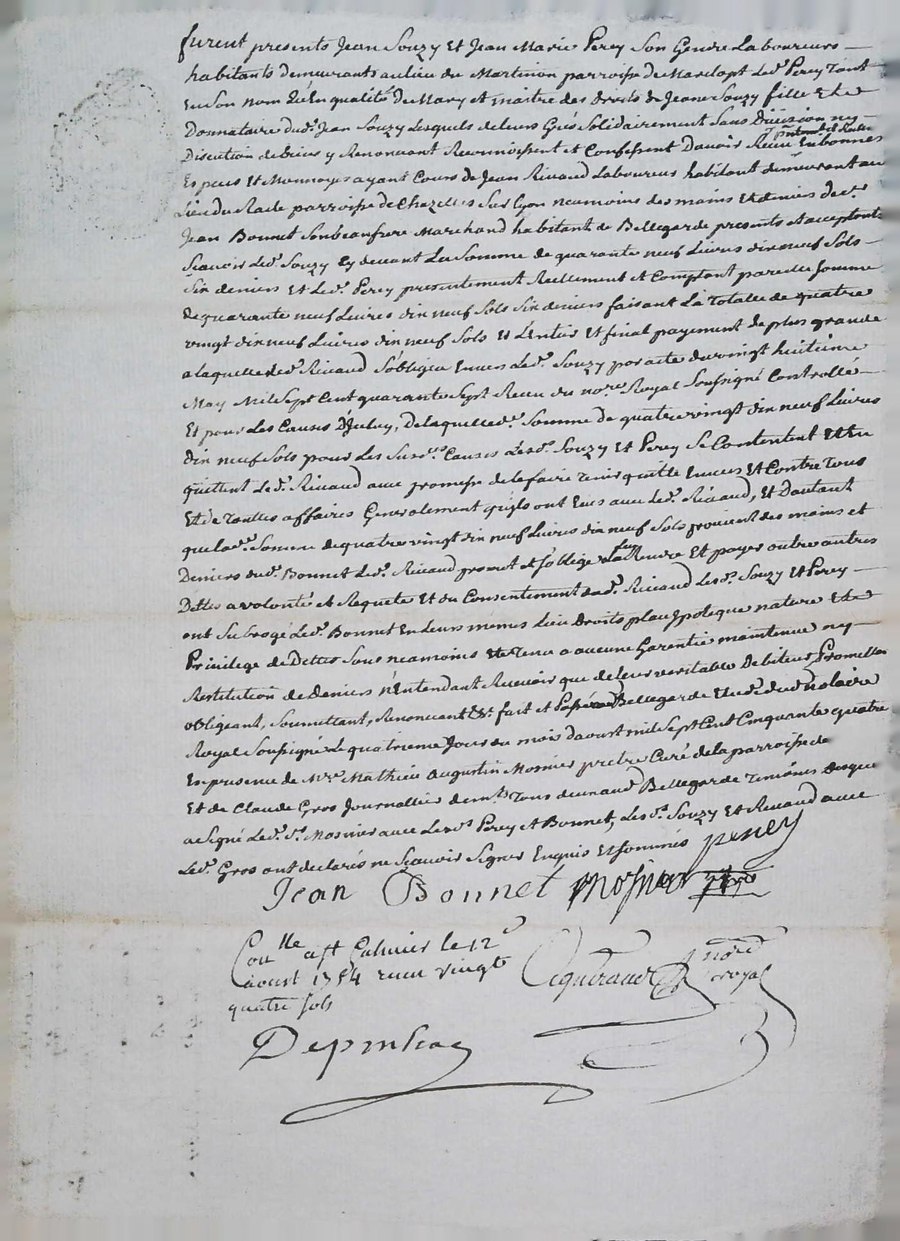 furent presents Jean Souzy Et Jean Marie Perey Son Gendre Laboureurs
habitants demeurants au lieu du Martinon parroisse de Marclopt Led.t Perey tant
En Son nom qu'En qualité De Mary et maitre des droits de Jeane Souzy fille Et
Donnataire dud.t Jean Souzy Lesquels de leurs Grés Solidairement Sans Division ny
Discution de biens y Renonçant Reconnoissent et Confessent Davoir Receu En bonnes
Especes Et Monnoyes ayant Cours de Jean Rivaud Laboureur habitant demeurant au
Lieu du parroisse de Chazelles Sur Lyon neamoins des mains Et deniers de
Jean Bonnet Son beaufrere Marchand habitant de Bellegarde presents et acceptants
Sçavoir Led.t Souzy Cy devant La Somme de quarante neuf Livres dix neuf Sols
Six deniers Et Led.t Perey presentement Reellement et Comptant pareille Somme
de quarante neuf Livres dix neuf Sols Six deniers faisant La Totalle de quatre
vingt dix neuf Livres dix neuf Sols Et L'entier Et final payement de plus grande
a laquelle led.t Rivaud S'obligea Envers Led.t Souzy par acte du vingt huitieme
May Mil Sept Cent quarante Sept Receu du no.re Royal Soussigné Controllé
Et pour Les Causes D'Iceluy, de laquelle Somme de quatre vingt dix neuf Livres
dix neuf Sols pour Les Causes Lesd.t Souzy Et Perey Se Contentent Et En
quittent Led.t Rivaud avec promesse de le faire tenir quitte Envers Et Contre Tous
Et de Touttes affaires Generalement qu'ils ont Eues avec Led.t Rivaud, Et Dautant
que lad.e Somme de quatre vingt dix neuf Livres dix neuf Sols provient des mains et
Deniers dud.t Bonnet Led.t Rivaud promet et s'oblige La Luy Rendre Et payer outre autres
Dettes a volonté et Requete Et du Consentement dud.t Rivaud Lesd.t Souzy Et Perey
ont Subrogé Led.t Bonnet En leurs mêmes Lieu Droits place hypoteque nature Et
Privilege de Dettes Sans neamoins Etre Tenu a aucune Garentie maintenue ny
Restitution de Deniers n'Entendant Recevoir que de leur veritable Debiteur Promettant
obligeant, Soumettant, Renonçant &.a fait et Passé a Bellegarde Etude du d.t notaire
Royal Soussigné Le quatrieme Jour du mois daoust mil Sept Cent Cinquante quatre
En presence de M.re Mathieu Augustin Mosnier pretre Curé de la parroisse de
Et de Claude Gros Journallier dem.ts Tous deux aud.t Bellegarde Temoins Lesquels
a Signé Led.t S.r Mosnier avec Lesd.ts Perey et Bonnet, Lesd.t Souzy Et Rivaud avec
Led.t Gros ont declarés ne Sçavoir Signer Enquis Et Sommés perey
Jean Bonnet Mosnier
Con.lle a St Galmier le 12.e
aoust 1754 receu vingt
quatre sols
no.re royal